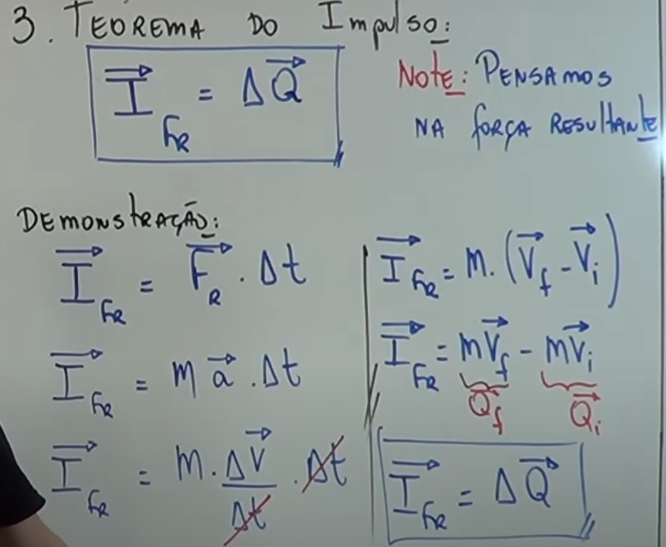 3. TEOREMA DO Impulso:
$\vec{I}_{F_R} = \Delta \vec{Q}$
Note: PENSAMOS
NA força RESULTANTE
DEMONSTRAÇÃO:
$\vec{I}_{F_R} = \vec{F}_R \cdot \Delta t$
$\vec{I}_{F_R} = m \vec{a} \cdot \Delta t$
$\vec{I}_{F_R} = m \cdot \frac{\Delta \vec{V}}{\Delta t} \cdot \Delta t$
$\vec{I}_{F_R} = m \cdot (\vec{V}_f - \vec{V}_i)$
$\vec{I}_{F_R} = m\vec{V}_f - m\vec{V}_i$
$\vec{Q}_f$ $\vec{Q}_i$
$\vec{I}_{F_R} = \Delta \vec{Q}$